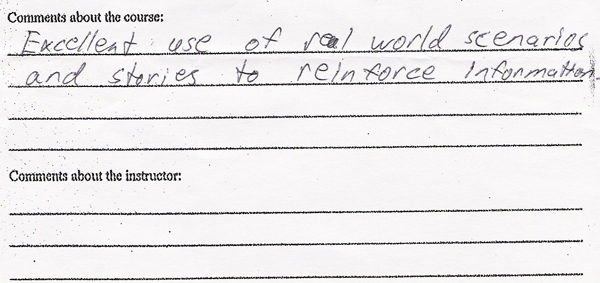 Comments about the course:
Excellent use of real world scenarios
and stories to reinforce information
Comments about the instructor: